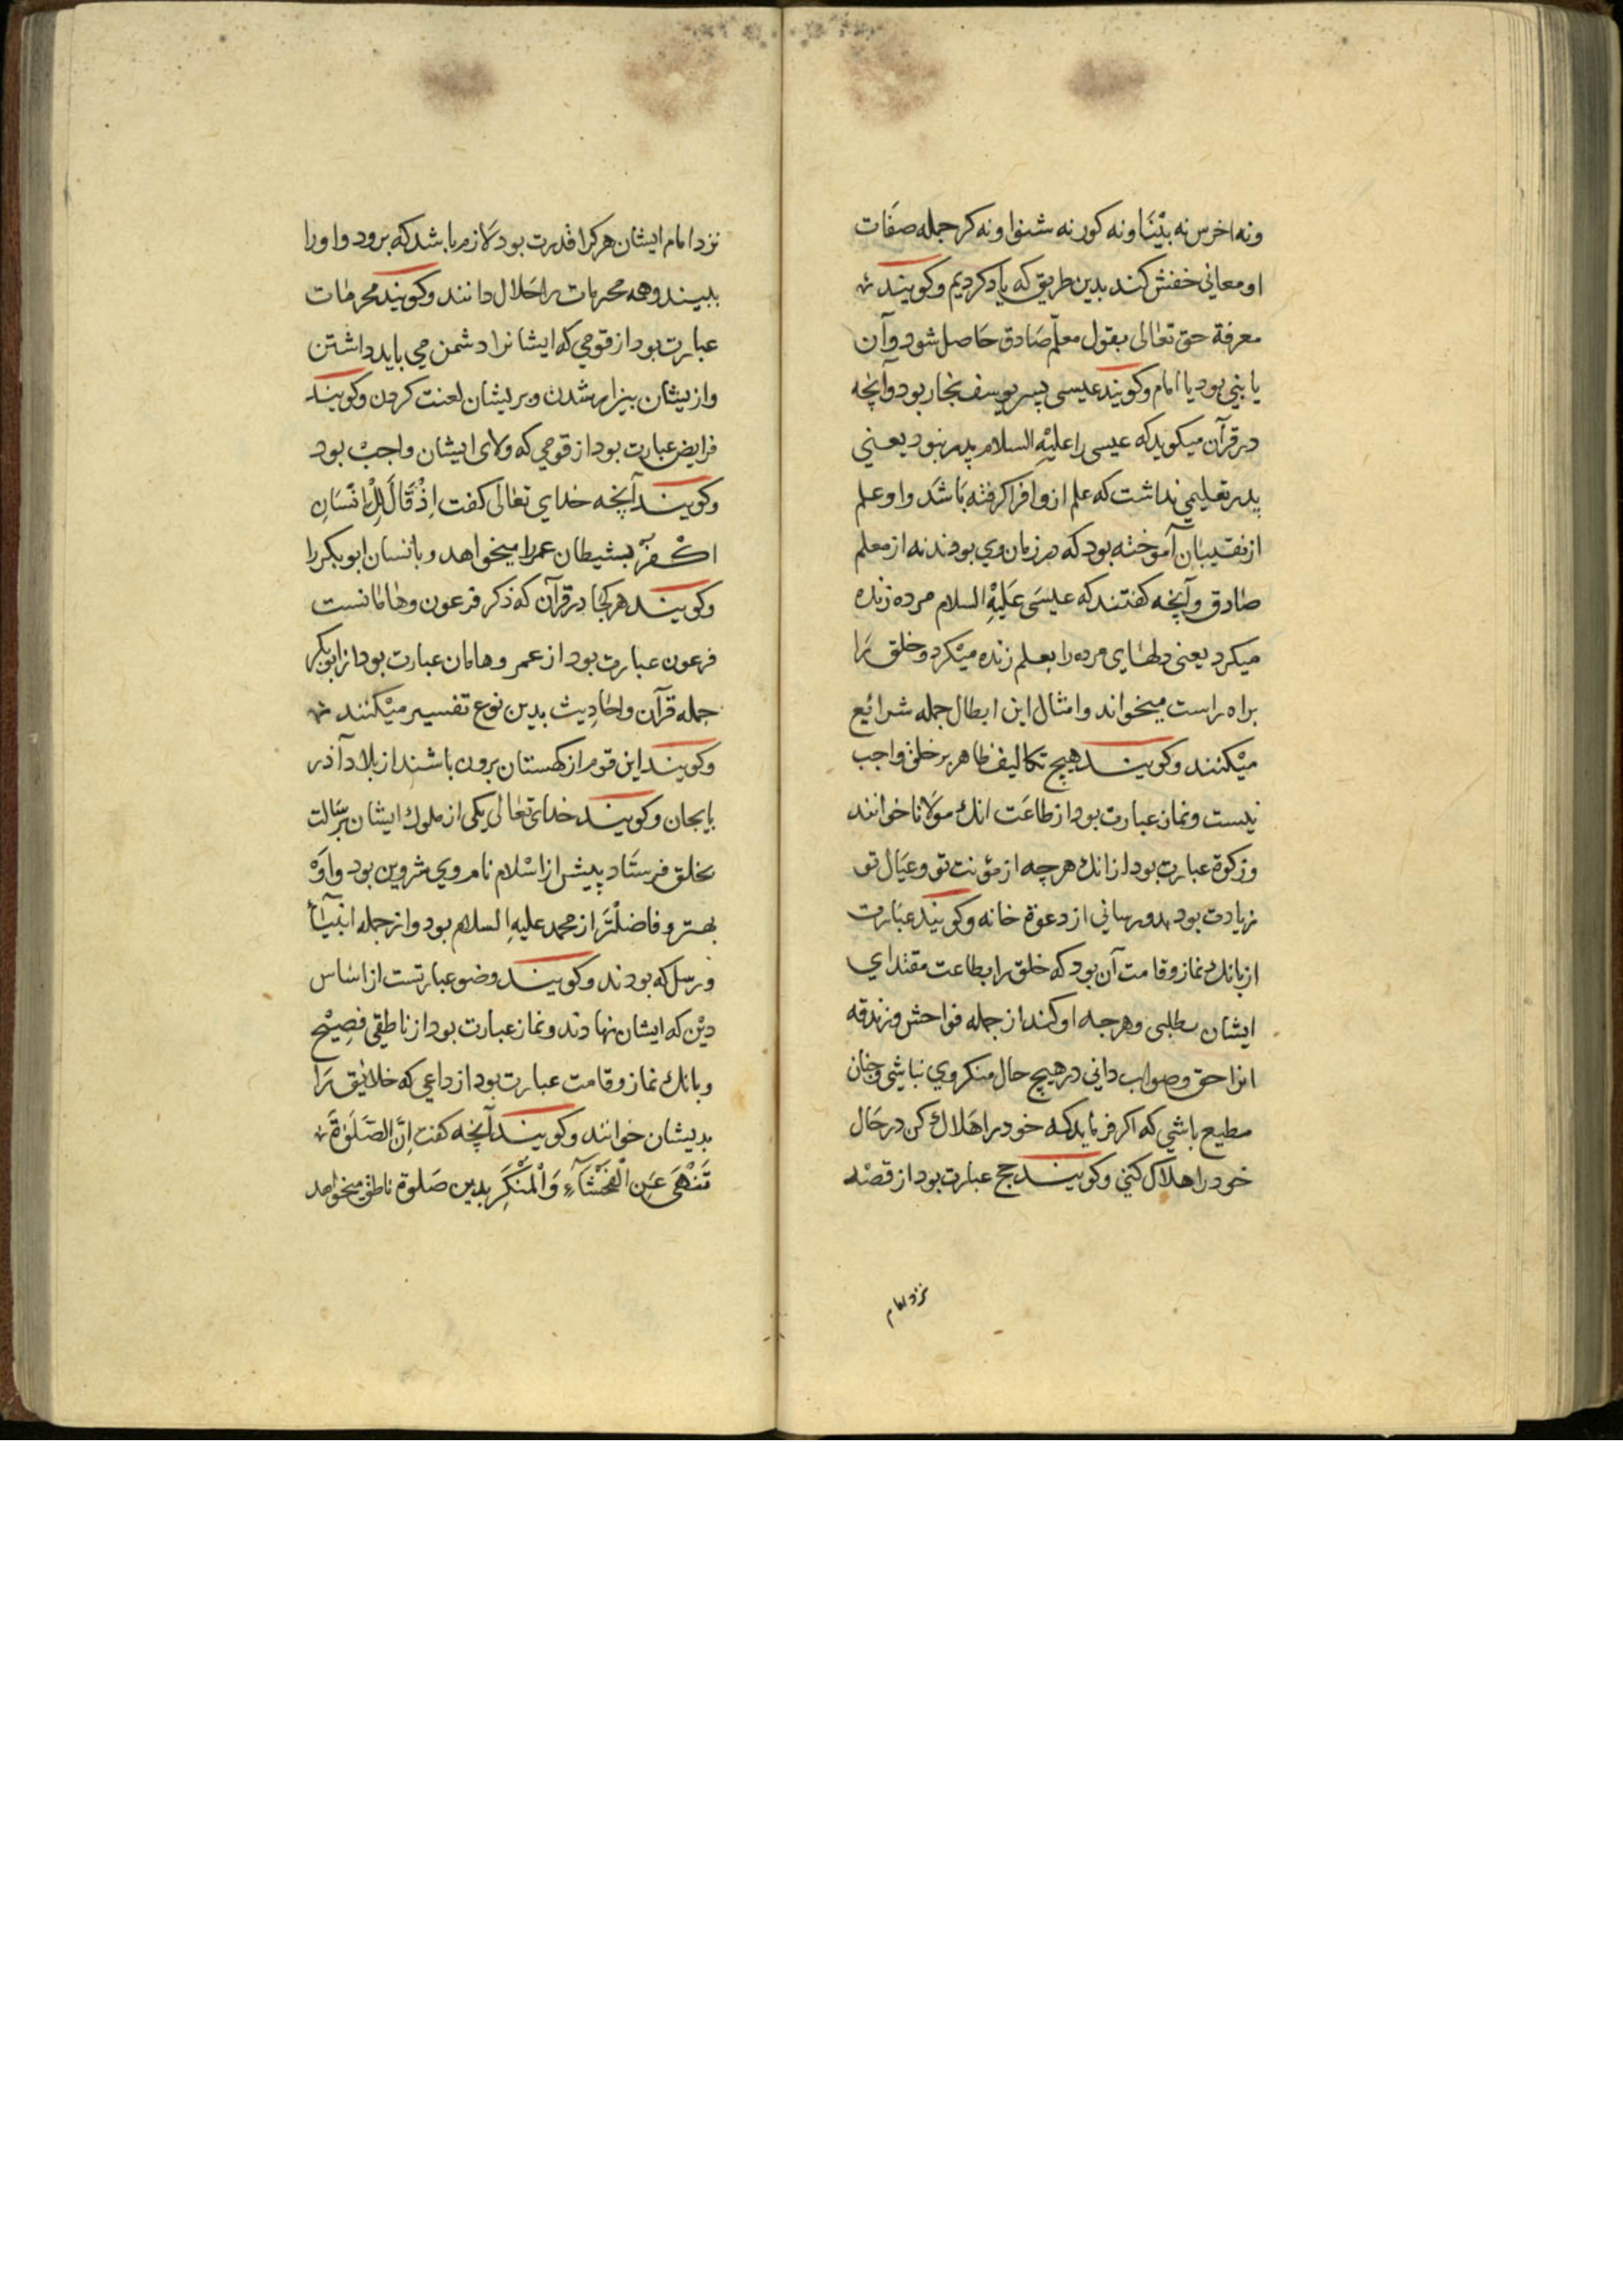 ونه اخرس نه بیْنَا ونه کور نه شنوا ونه کر جمله صفَات
او معانی خفش کند بدین طریق که یاد کردیم وکویند
معرفة حق تعالی بقول معلّم صَادق حَاصل شود وآن
یا بنی بود یا امام وکویند عیسی پسر یوسف نجار بود وآنچه
در قرآن میکوید که عیسی را علیْهِ السلام پدر نبود یعنی
پدر تعلیمی نداشت که علم ازو افرا کرفته بَاشَد واو علم
از نقیبان آموخته بود که در زمان وی بودند نه از معلم
صَادق وآنچه کفتند که عیسَی عَلَیْهِ السلام مرده زنده
میکرد یعنی دلهَای مرده را بعلم زنده میْکرد وخلق رَا
براه راست میخواند وامثال این ابطال جمله شرائع
میْکنند وکوینـد هیچ تکالیف ظاهر بر خلق واجب
نیست ونماز عبارت بود از طاعَت انك مَولَانا خوانند
وزکوة عبارت بود از انك هرچه از مؤنت تو وعیَال تو
زیادت بود بدو رسانی از دعوة خانه وکویند عبَارت
از بانك نماز وقامت آن بود که خلق را بطاعت مقتدای
ایشان بطلبی وهرچه او کند از جمله فواحش وزندقه
انرا حق وصواب دانی در هیچ حال منکر وی نباشی وچنان
مطیع باشی که اکر فرماید که خود را هَلاك کن در حَال
خود را هلاک کنی وکوینـد حج عبارت بود از قصْد
نزد امام
نزد امام ایشان هرکرا قدرت بود لَازم باشد که برود واو را
ببیند وهمه محرمات را حَلال دانند وکویند محرمَات
عبارت بود از قومی که ایشانرا دشمن می باید داشتن
واز یشان بیزار شدن وبریشان لعنت کردن وکویند
فرایض عبارت بود از قومی که ولای ایشان واجبْ بود
وکوینـد آنچه خدای تعَالی کفت اِذْ قَالَ لِلْاِنْسَانِ
اكْـفُرْ بشیطان عمر را میخواهد وبانسان ابو بکر را
وکوینـد هر کجا در قرآن که ذکر فرعون وهَامَانست
فرعون عبارت بود از عمر وهامان عبارت بود از ابو بکر
جمله قرآن واحَادِیث بدین نوع تفسیر میْکنند
وکوینـد این قوم از کهستان برون باشند از بلاد آذر
بایجان وکوینـد خدای تعَالی یکی از ملوك ایشان برسَالت
بخلق فرستَاد پیش از اسْلام نام وی شروین بود واوَ
بهتر وفاضلْترَ از محمد علیهِ السلام بود واز جمله انبیَآءْ
ورسل که بودند وکوینـد وضو عبارتست از اسَاس
دیْن که ایشان نهادند ونماز عبارت بود از ناطقی فصِیْح
وبانك نماز وقامت عبارت بود از داعی که خلایق رَا
بدیشان خوانند وکوینـد آنچه کفت اِنَّ الصَّلَوٰةَ
تَنْهَی عَنِ الْفَحْشَآءِ وَالْمُنْکَرِ بدین صَلوة ناطق میخواهد